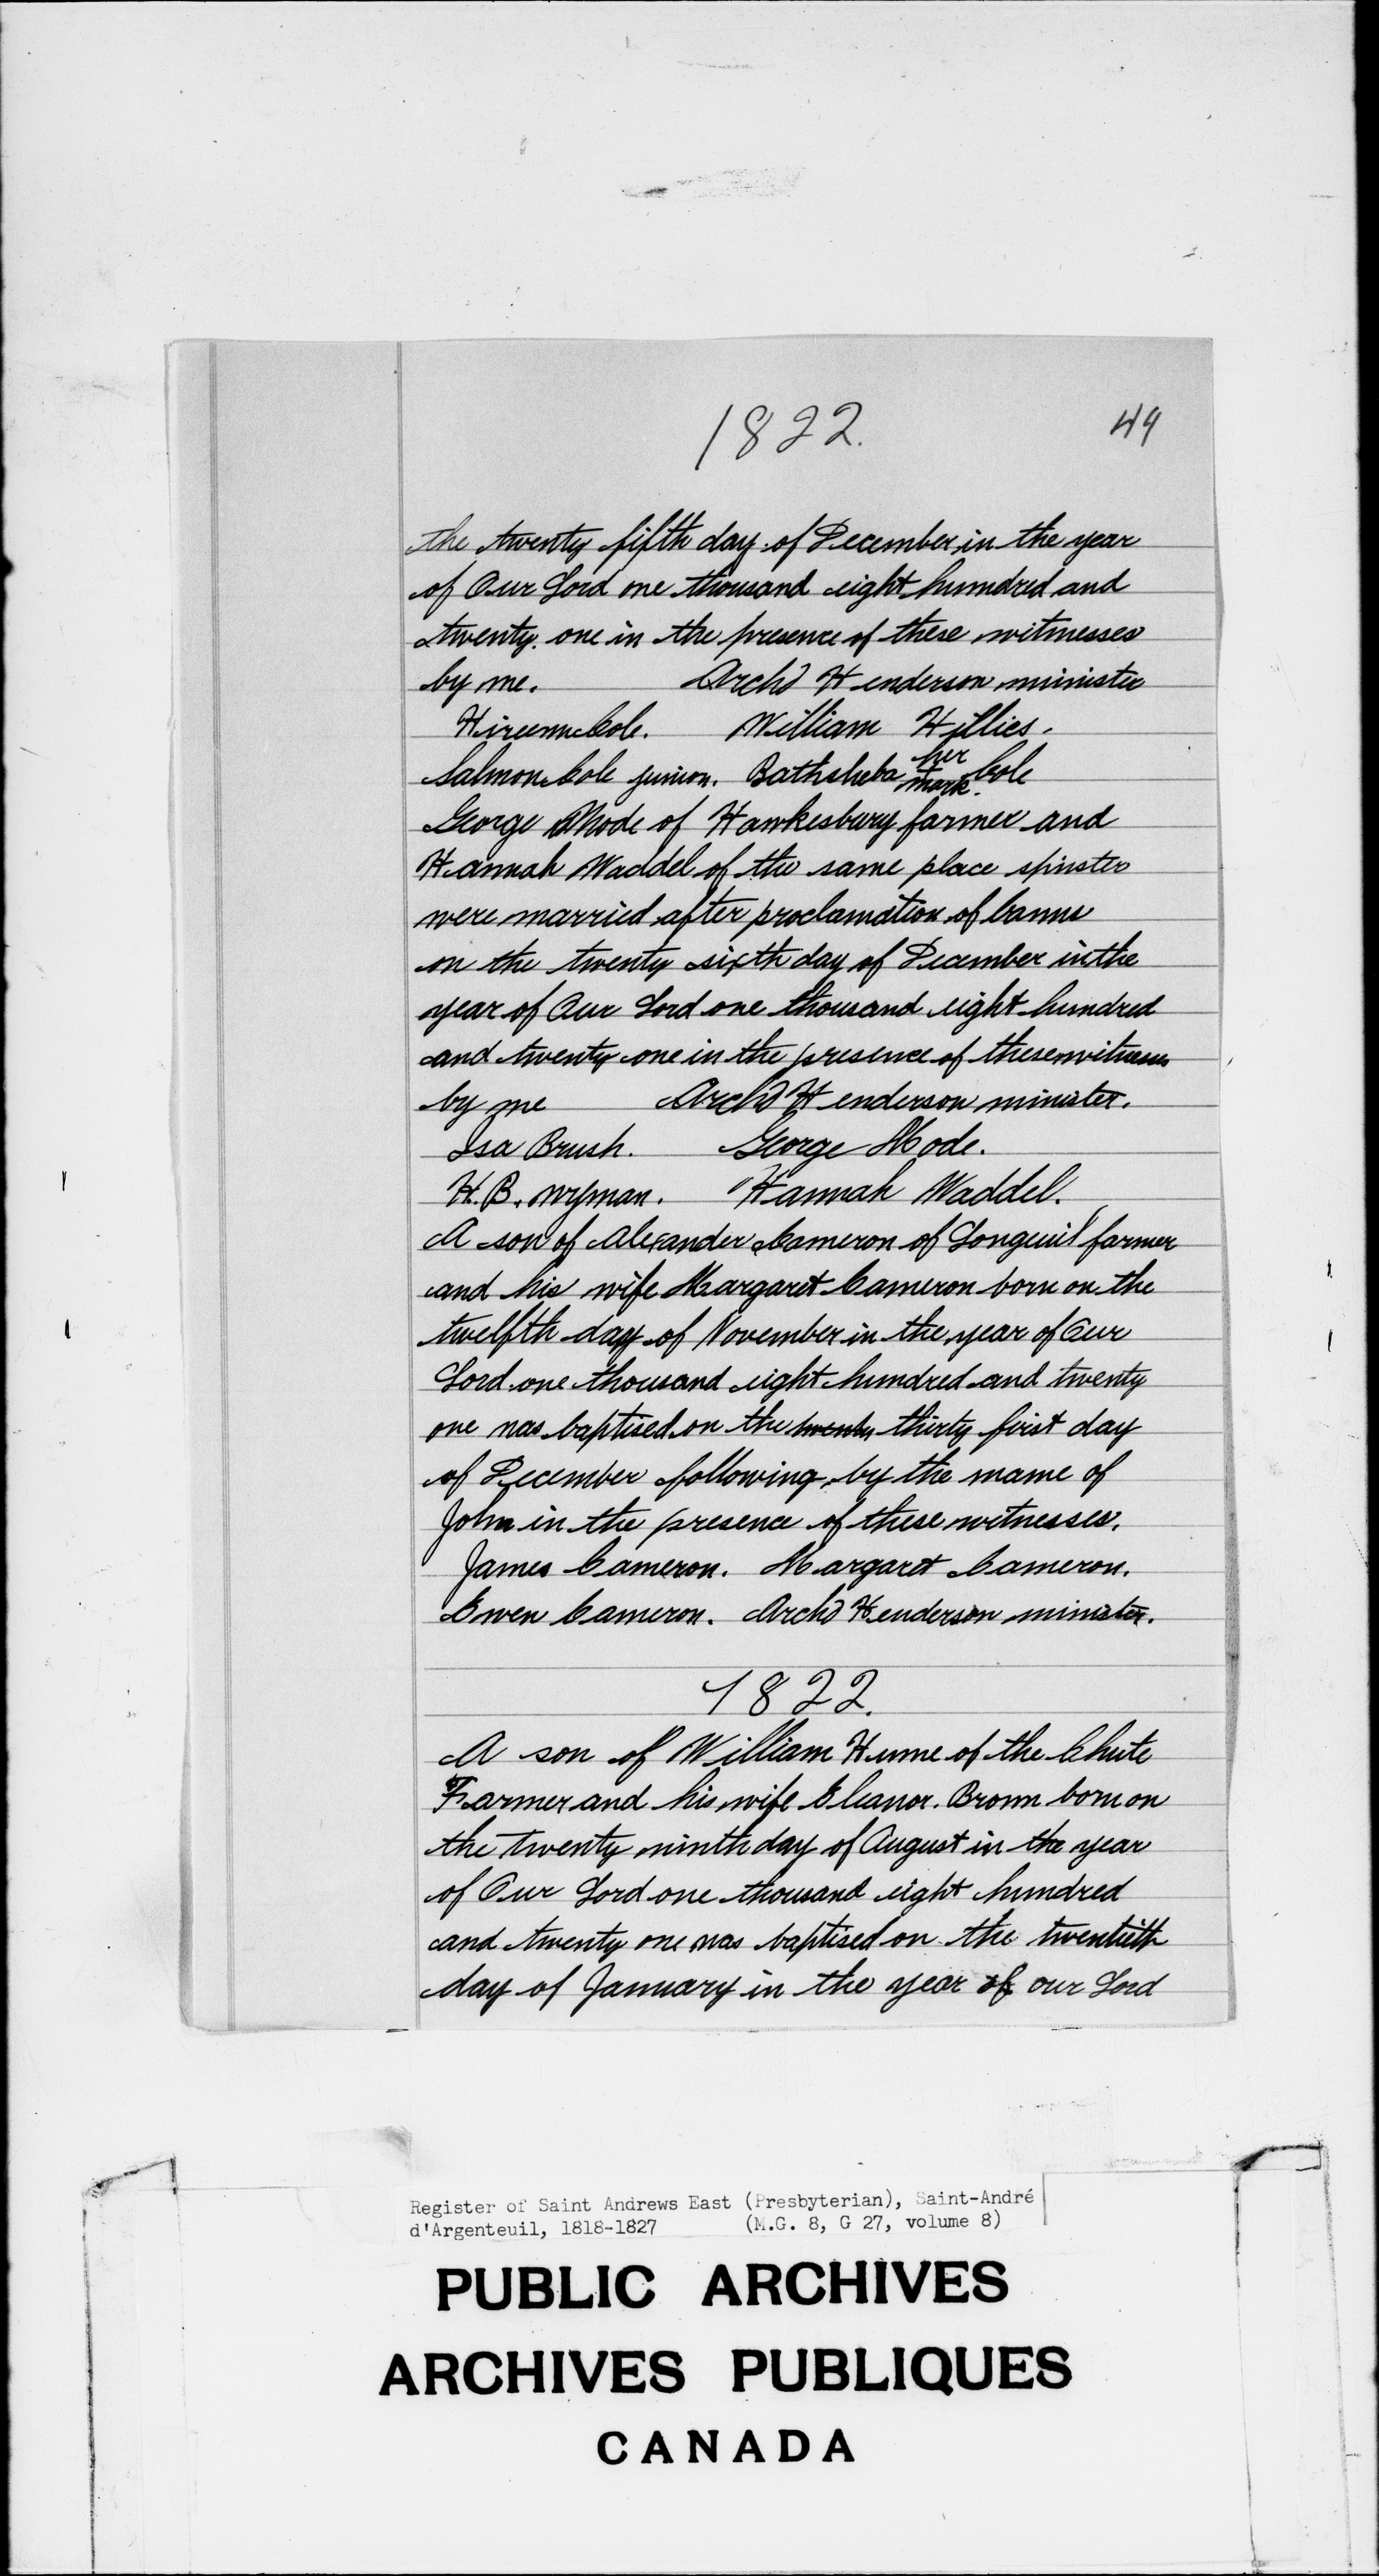 1822. 49
the twenty fifth day of December in the year
of Our Lord one thousand eight hundred and
twenty one in the presence of these witnesses
by me. Archd Henderson minister
Cole. William Hillies.
Salmon Cole junion. Bathsheba her mark. Cole
George Mode of Hawkesbury farmer and
Hannah Waddel of the same place spinster
were married after proclamation of banns
on the twenty sixth day of December in the
year of Our Lord one thousand eight hundred
and twenty one in the presence of these witnesses
by me Archd Henderson minister.
Isa Brush. George Mode.
H. B. Wyman. Hannah Waddel.
A son of Alexander Cameron of Longeuil farmer
and his wife Margaret Cameron born on the
twelfth day of November in the year of Our
Lord one thousand eight hundred and twenty
one was baptised on the twenty thirty first day
of December following by the name of
John in the presence of these witnesses.
James Cameron. Margaret Cameron.
Ewen Cameron. Archd Henderson minister.
1822.
A son of William Hume of the Chute
Farmer and his wife Eleanor. Brown born on
the twenty ninth day of August in the year
of Our Lord one thousand eight hundred
and twenty one was baptised on the twentieth
day of January in the year of our Lord
Register of Saint Andrews East (Presbyterian), Saint-André
d'Argenteuil, 1818-1827 (M.G. 8, G 27, volume 8)
PUBLIC ARCHIVES
ARCHIVES PUBLIQUES
CANADA